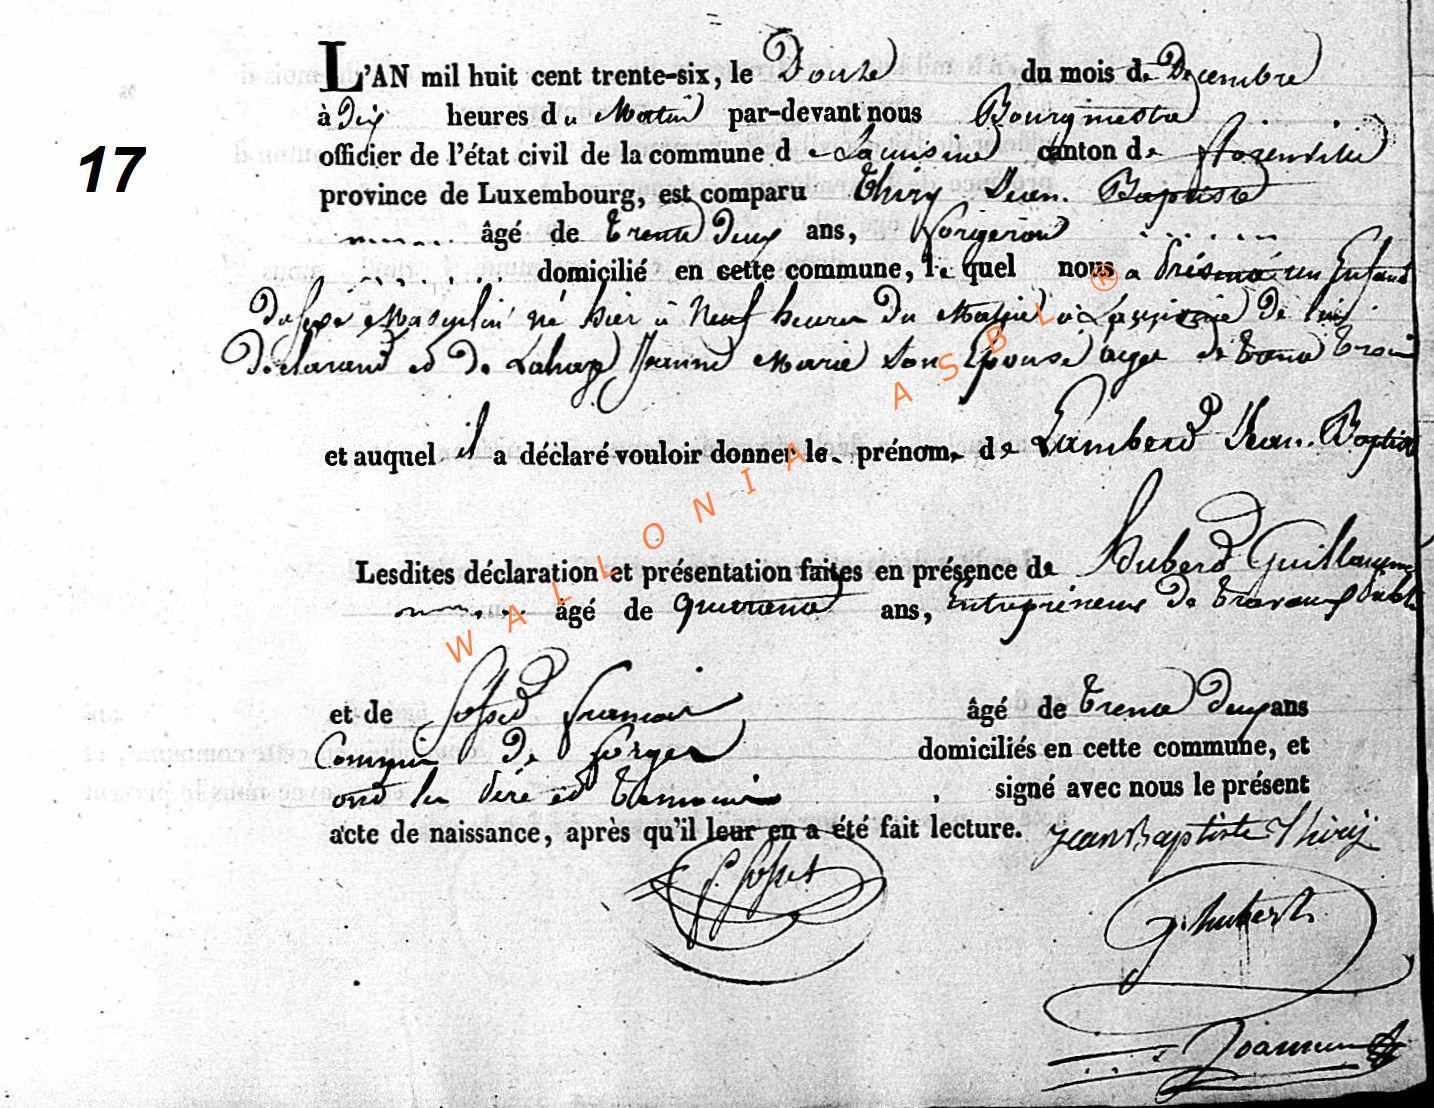 L'AN mil huit cent trente-six, le Douze du mois de Decembre
à Dix heures du Matin par-devant nous Bourgmestre
17
officier de l'état civil de la commune de Lacuisine canton de florenville
province de Luxembourg, est comparu Thiry Jean Baptiste
âgé de trente Deux ans, forgeron
domicilié en cette commune, le quel nous a présenté un Enfant
du sexe Masculin né hier à Neuf heures du Matin à Lacuisine De lui
Déclarant et De Lahaye Jeanne Marie Son Epouse agée de trente trois
et auquel il a déclaré vouloir donner le prénom de Lambert Jean Baptiste
Lesdites déclaration et présentation faites en présence de hubert Guillaume
âgé de quarante ans, Entrepreneur De travaux Public
et de Gofset francois âgé de trente Deux ans
Commis De forges domiciliés en cette commune, et
ont les père et temoins signé avec nous le présent
acte de naissance, après qu'il leur en a été fait lecture. Jean Baptiste Thiry
g. hubert
WALLONIA ASBL ®